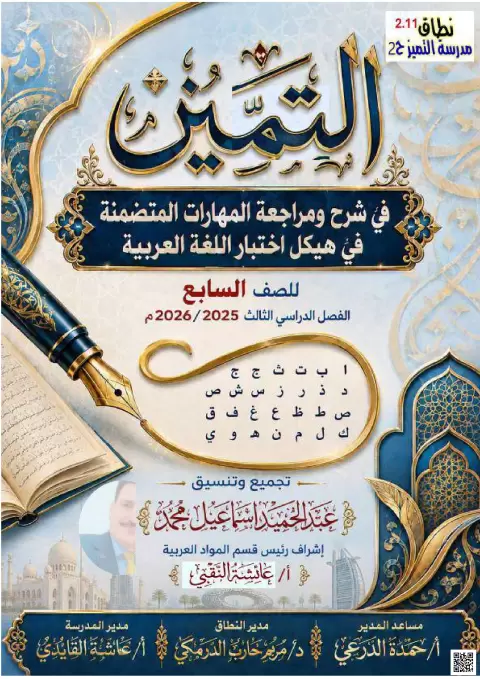 نطاق 2.11
مدرسة التميز ح2
التميُّز
في شرح ومراجعة المهارات المتضمنة
في هيكل اختبار اللغة العربية
للصف السابع
الفصل الدراسي الثالث 2025/2026 م
ا ب ت ث ج ج
د ذ ر ز س ش ص
ص ط ظ ع غ ف ق
ك ل م ن ه و ي
تجميع وتنسيق
عبدالحميد إسماعيل محمد
إشراف رئيس قسم المواد العربية
أ/ عائشة النقبي
مساعد المدير
أ/ حمدة الذرعي
مدير النطاق
د/ مريم حارب الدرمكي
مدير المدرسة
أ/ عائشة القايدي